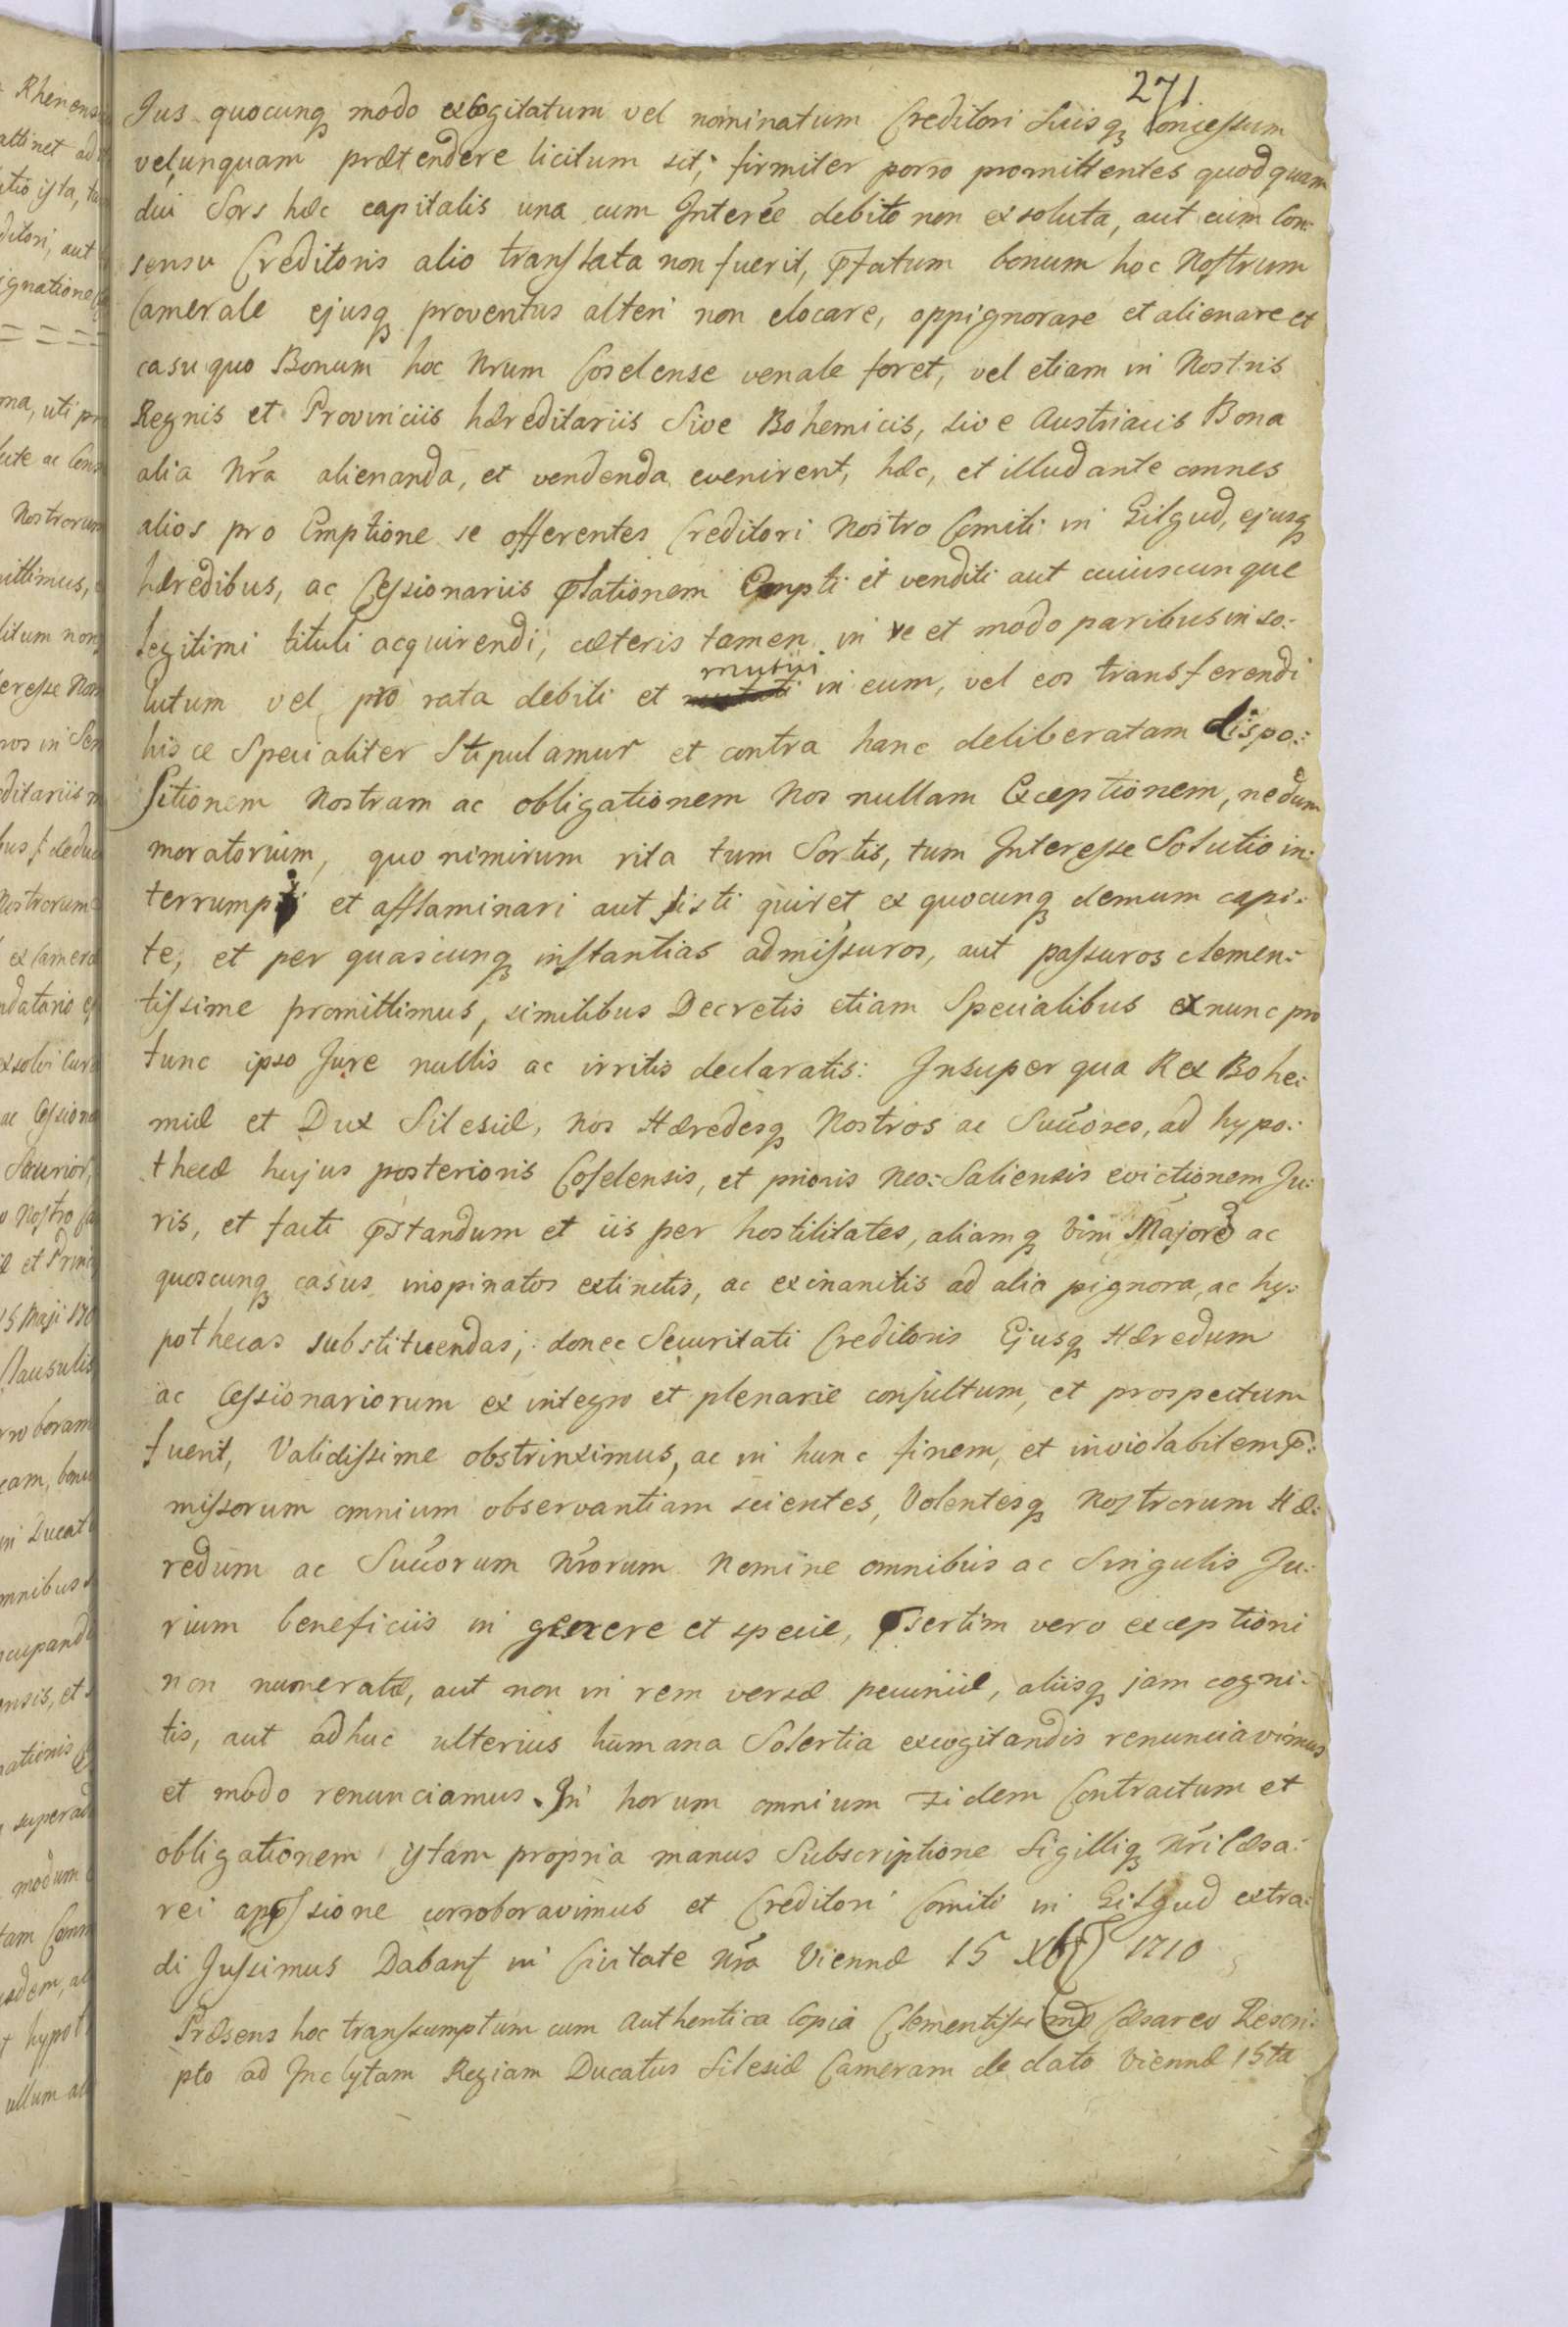 271.
Jus quocunq modo excogitatum vel nominatum Creditori Suisq Concessum
vel unquam prætendere licitum sit; firmiter porro promittentes quod quam
diu Sors hæc capitalis una cum Interée debito non exsoluta, aut cum Con:
sensu Creditoris alio translata non fuerit, pfatum bonum hoc Nostrum
Camerale ejusq proventus alteri non elocare, oppignorare et alienare et
casu quo Bonum hoc Nrum Coselense venale foret, vel etiam in Nostris
Regnis et Provinciis hæreditariis Sive Bohemicis, sive Austriacis Bona
alia Nra alienanda, et vendenda evenirent, hæc, et illud ante omnes
alios pro Emptione se offerentes Creditori Nostro Comiti in Gilgud, ejusq
hæredibus, ac Cessionariis plationem Empti et venditi aut cuiuscunque
legitimi tituli acquirendi, cæteris tamen in re et modo paribus in so:
lutum vel pro rata debiti et mutui in eum, vel eos transferendi
hisce Specialiter Stipulamur et contra hanc deliberatam dispo:
sitionem Nostram ac obligationem Nos nullam Exceptionem, nedum
moratorium, quo nimirum rita tum Sortis, tum Interesse Solutio in:
terrumpi et afflaminari aut sisti quiret, ex quocunq demum capi:
te, et per quascunq instantias admissuros, aut passuros clemen:
tissime promittimus, similibus Decretis etiam Specialibus ex nunc pro
tunc ipso Jure nullis ac irritis declaratis: Insuper qua Rex Bohe:
miæ et Dux Silesiæ, Nos Hæredesq Nostros ac Succores, ad hypo:
thecæ hujus posterioris Coselensis, et prioris Neo:Saliensis evictionem Ju:
ris, et facti pstandum et iis per hostilitates, aliamq Vim Majorē ac
quoscunq casus inopinatos extinctis, ac exinanitis ad alia pignora, ac hy:
pothecas substituendas; donec Securitati Creditoris Ejusq Hæredum
ac Cessionariorum ex integro et plenarie consultum, et prospectum
fuerit, Validissime obstrinximus, ac in hunc finem, et inviolabilem p:
missorum omnium observantiam scientes, Volentesq Nostrorum Hæ:
redum ac Succorum Nrorum Nomine omnibus ac Singulis Ju:
rium beneficiis in genere et specie, psertim vero exceptioni
non numeratæ, aut non in rem versæ pecuniæ, aliisq jam cogni:
tis, aut adhuc ulterius humana Solertia excogitandis renunciavimus
et modo renunciamus. In horum omnium Fidem Contractum et
obligationem istam propria manus Subscriptione Sigilliq Nri Cæsa:
rei appssione corroboravimus et Creditori Comiti in Gilgud extra:
di Jussimus Dabant in Civitate Nra Viennæ 15 Xbris 1710
Præsens hoc transsumptum cum Authentica Copia Clementissimo Cæsareo Rescri:
pto ad Inclytam Regiam Ducatus Silesiæ Cameram de dato Viennæ 15ta